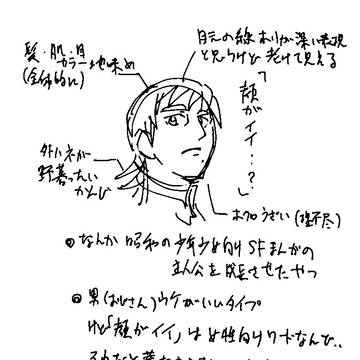 髪・肌・目
カラー地味め
(全体的に)
目元の線ホリが深い表現
と見うけど老けて見える
「顔が
イイ…?」
外ハネが
野暮ったい
かんじ
ホクロうざい(理不尽)
なんか昭和の少年少女向SFまんがの
主人公を成長させたやつ
男(おじさん)ウケがいいタイプ
けど「顔がイイ」は女性向けワードなんで‥